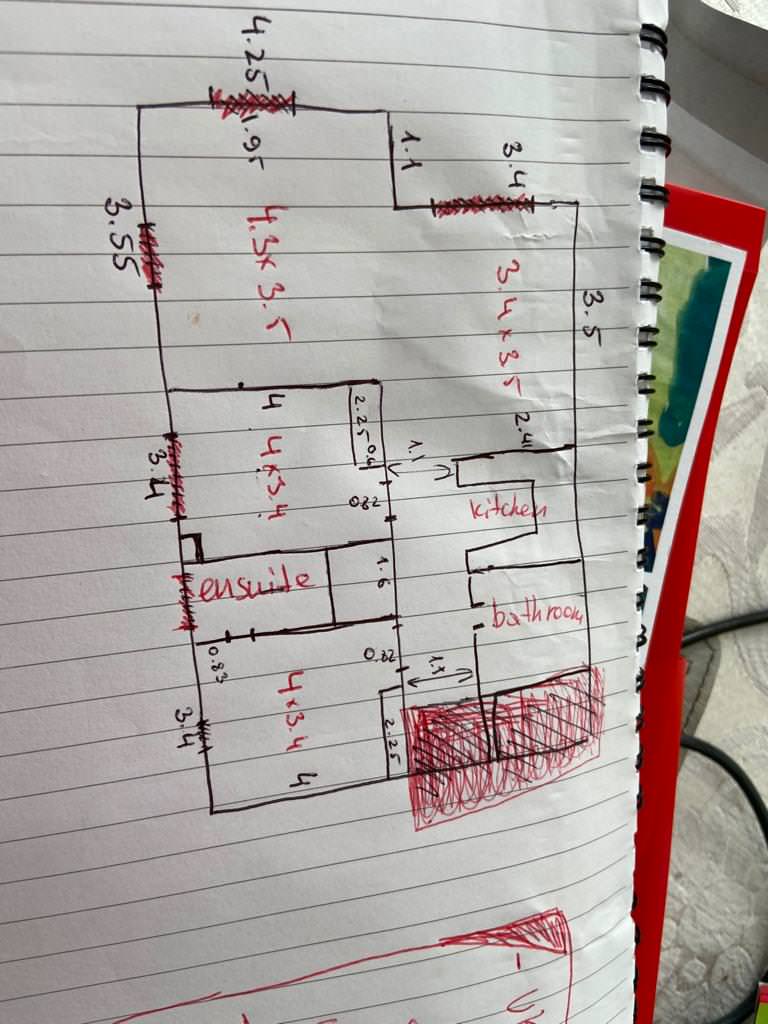 4.25
1.95
1.1
3.4
3.55
4.3x 3.5
3.4 x 3.5
3.5
2.41
4
4x3.4
2.25
0.6
1.1
0.82
kitchen
3.4
ensuite
1.6
bathroom
0.83
0.82
1.1
3.4
4x3.4
4
2.25